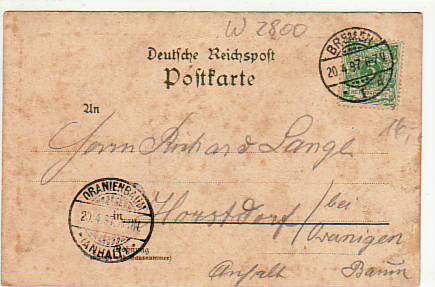 W 2800
Deutsche Reichspost
Postkarte
BREMEN
20.4.97
1
An
Herrn Richard Lange
16,-
ORANIENBAUM
20.4.97
(ANHALT)
in
Horstdorf bei
Wohnung
(Hausnummer)
Anhalt Baum